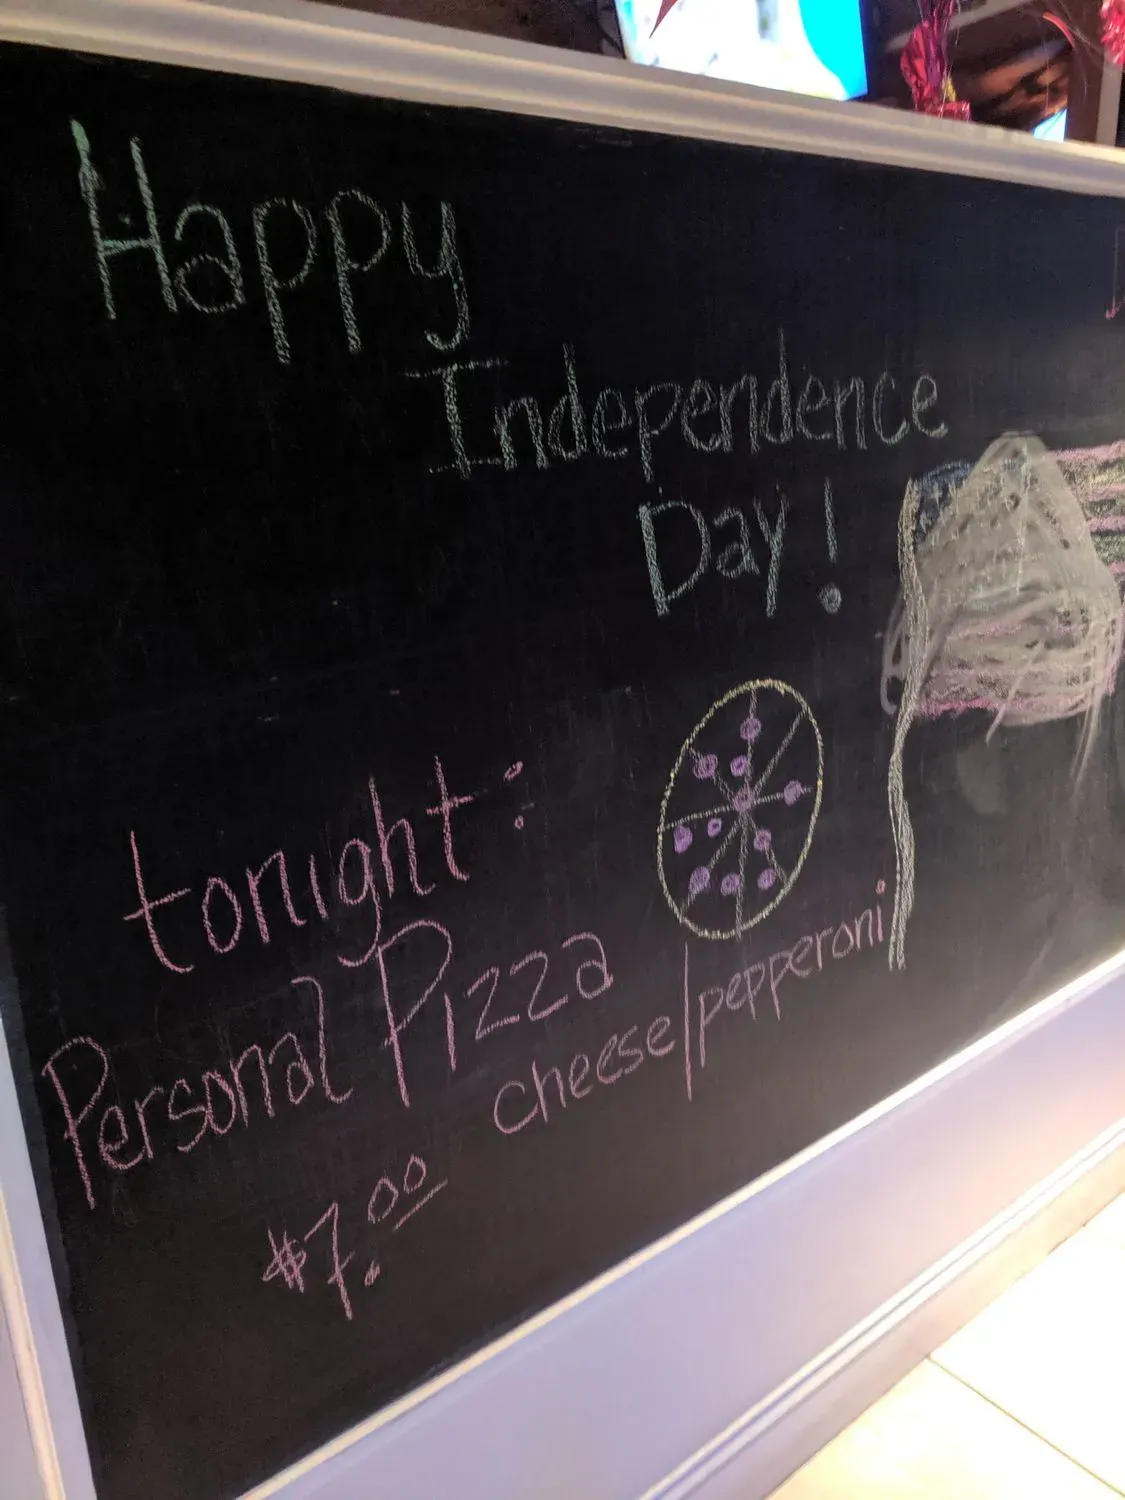 Happy
Independence
Day!
tonight:
Personal Pizza
cheese/pepperoni
$7.00